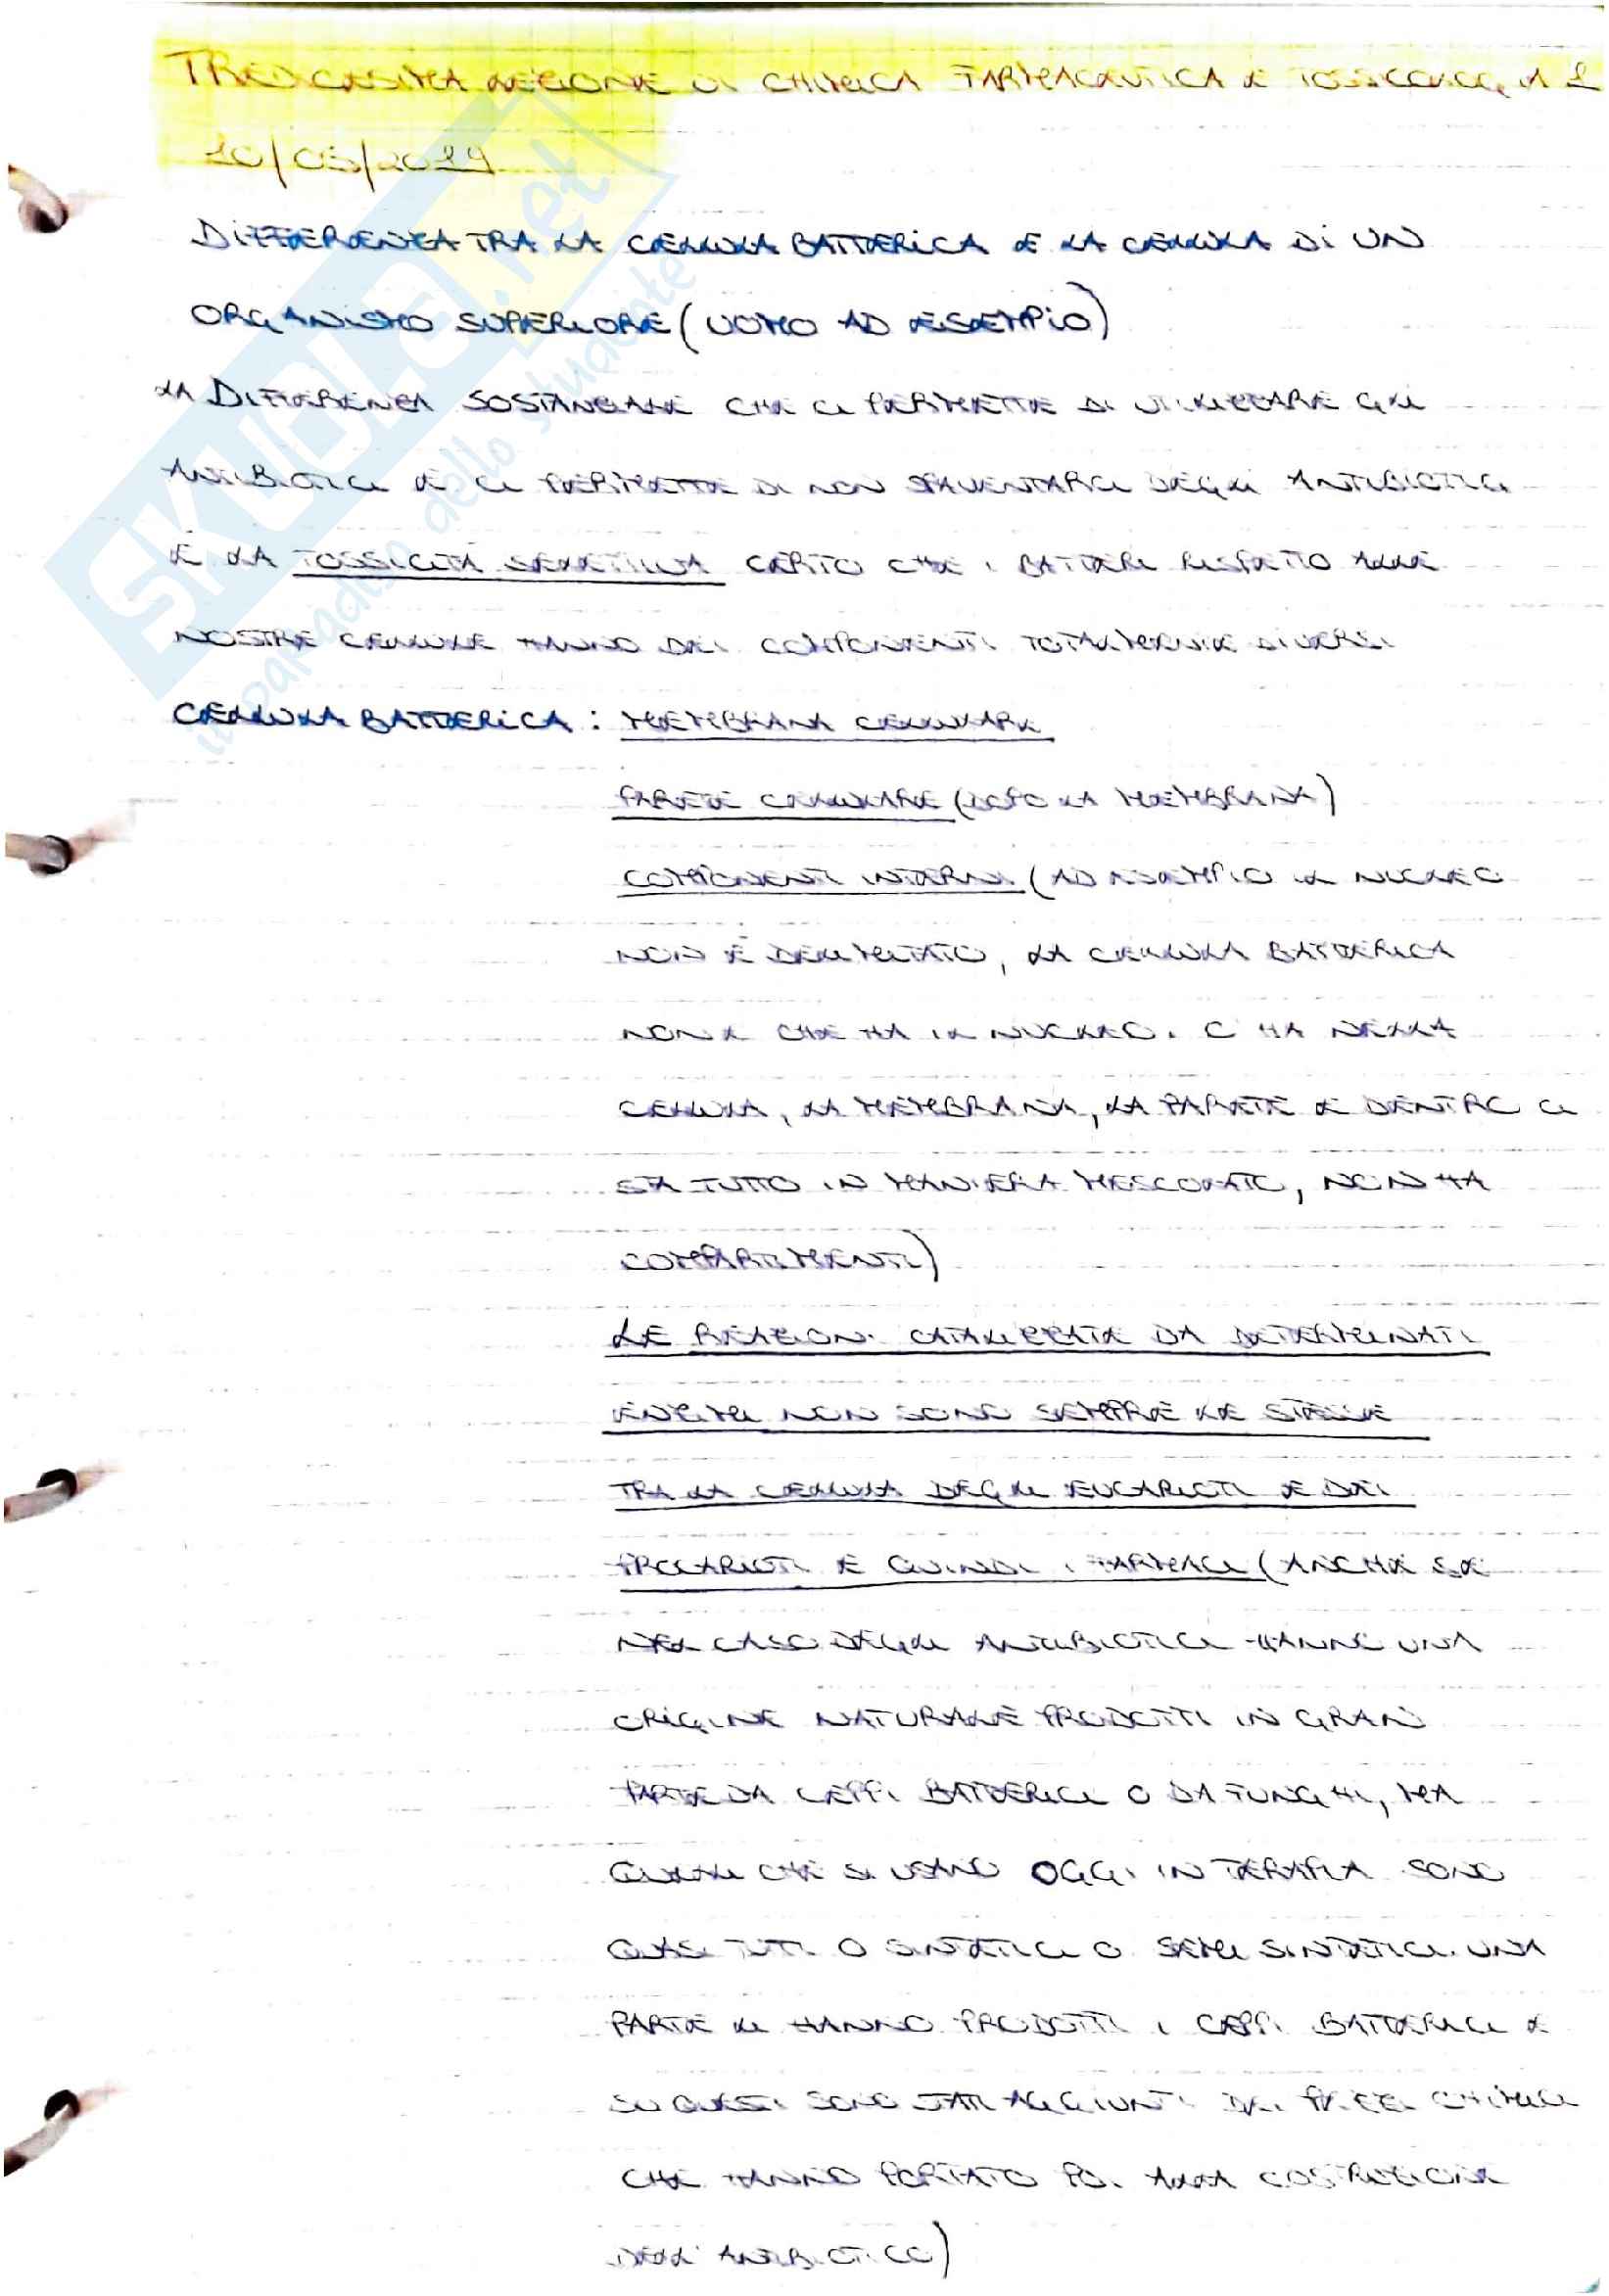 TREDICESIMA LEZIONE DI CHIMICA FARMACEUTICA E TOSSICOLOGIA 1
10/05/2019
DIFFERENZA TRA LA CELLULA BATTERICA E LA CELLULA DI UN
ORGANISMO SUPERIORE (UOMO AD ESEMPIO)
LA DIFFERENZA SOSTANZIALE CHE CI PERMETTE DI UTILIZZARE GLI
ANTIBIOTICI E CI PERMETTE DI NON SPAVENTARCI DEGLI ANTIBIOTICI
È LA TOSSICITÀ SELETTIVA CERTO CHE I BATTERI RISPETTO ALLE
NOSTRE CELLULE HANNO DEI COMPONENTI TOTALMENTE DIVERSI
CELLULA BATTERICA: MEMBRANA CELLULARE
PARETE CELLULARE (DOPO LA MEMBRANA)
COMPONENTI INTERNI (AD ESEMPIO IL NUCLEO
NON È DELIMITATO, LA CELLULA BATTERICA
NON È CHE HA IL NUCLEO. C'HA DELLA
CELLULA, LA MEMBRANA, LA PARETE E DENTRO CI
STA TUTTO IN MANIERA MESCOLATO, NON HA
COMPARTIMENTI)
LE REAZIONI CATALIZZATE DA DETERMINATI
ENZIMI NON SONO SEMPRE LE STESSE
TRA LA CELLULA DEGLI EUCARIOTI E DEI
PROCARIOTI E QUINDI I FARMACI (ANCHE SE
NEL CASO DEGLI ANTIBIOTICI HANNO UNA
ORIGINE NATURALE PRODOTTI IN GRAN
PARTE DA CEPPI BATTERICI O DA FUNGHI, MA
QUELLI CHE SI USANO OGGI IN TERAPIA SONO
QUASI TUTTI O SINTETICI O SEMI SINTETICI. UNA
PARTE LI HANNO PRODOTTI I CEPPI BATTERICI E
SU QUESTI SONO STATI AGGIUNTI DEI PEZZI CHIMICI
CHE HANNO PORTATO POI ALLA COSTRUZIONE
DELL'ANTIBIOTICO)
SKUOLA.net
il paradiso dello studente